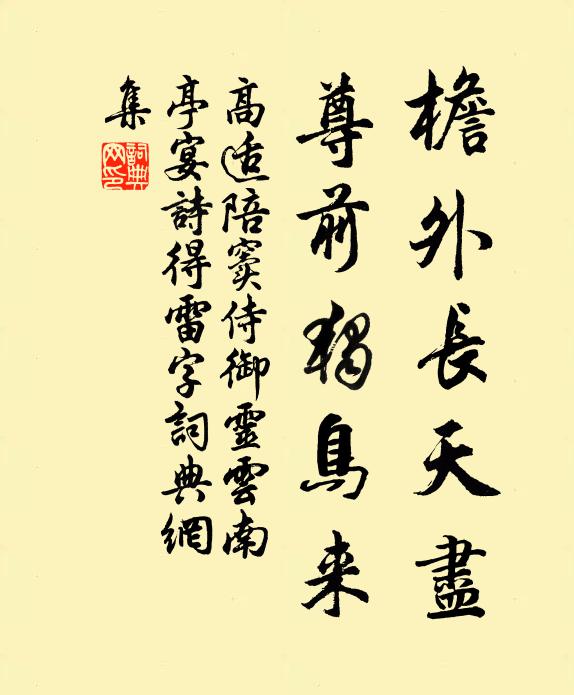 檐外長天盡
尊前獨鳥来
高适陪竇侍御靈雲南
亭宴詩得雷字詞典網
集
詞典
网印